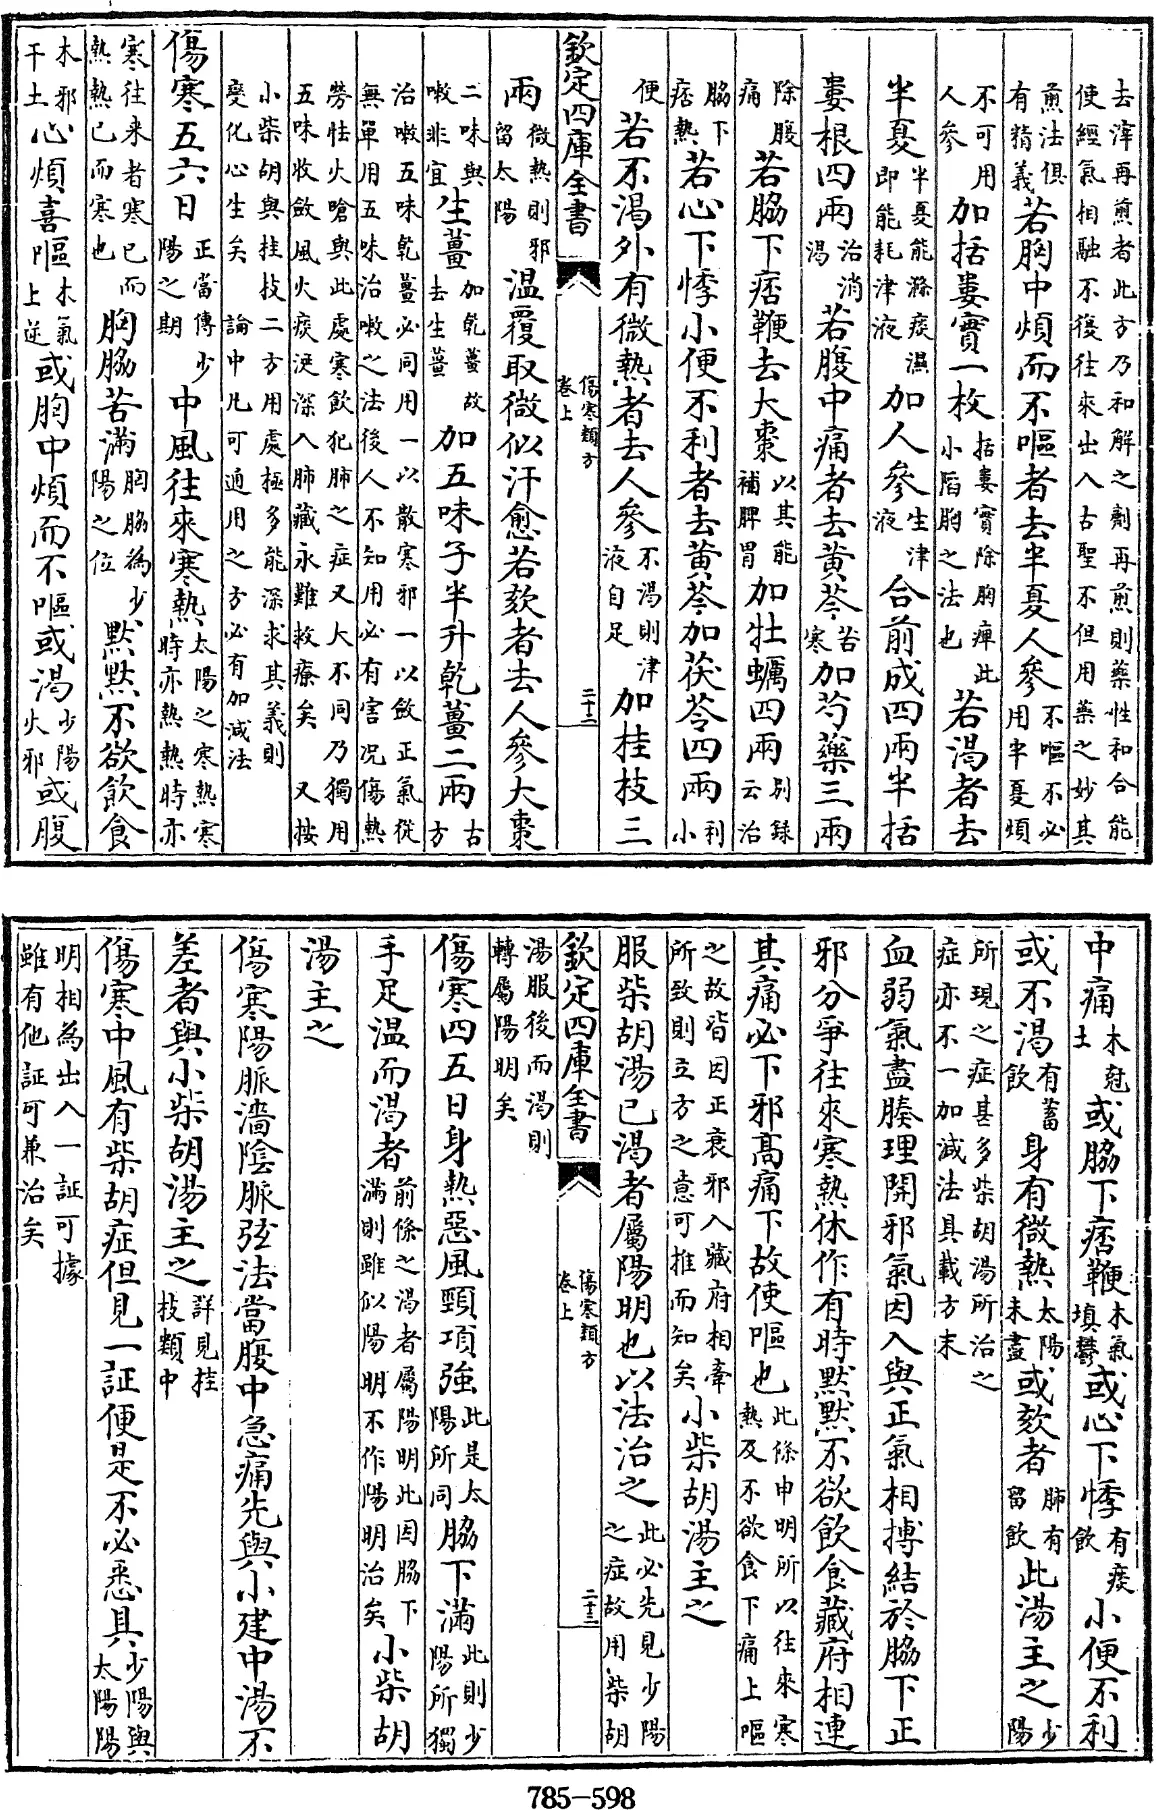 去滓再煎者此方乃和解之劑再煎則藥性和合能便經氣相融不復往來出入古聖不但用藥之妙其
煎法俱有精義若胸中煩而不嘔者去半夏人參不嘔不必用半夏煩
不可用人參加括蔞實一枚括蔞實除胸痺此小陷胸之法也若渴者去
半夏半夏能滌痰濕即能耗津液加人參生津液合前成四兩半括
蔞根四兩治消渴若腹中痛者去黄芩苦寒加芍藥三兩
除腹痛若脇下痞鞕去大棗以其能補脾胃加牡蠣四兩别録云治
脇下痞熱若心下悸小便不利者去黄芩加茯苓四兩利小
便若不渴外有微熱者去人參不渴則津液自足加桂枝三
欽定四庫全書 傷寒類方卷上 二十二
兩微熱則邪留太陽温覆取微似汗愈若欬者去人參大棗
二味與嗽非宜生薑加乾薑故去生薑加五味子半升乾薑二兩古方
治嗽五味乾薑必同用一以散寒邪一以斂正氣從無單用五味治嗽之法後人不知用必有害况傷熱
勞怯火嗆與此處寒飲犯肺之症又大不同乃獨用五味收斂風火痰涎深入肺藏永難救療矣 又按
小柴胡與桂枝二方用處極多能深求其義則變化心生矣 論中凡可通用之方必有加減法
傷寒五六日正當傳少陽之期中風往來寒熱太陽之寒熱寒時亦熱熱時亦
寒往来者寒已而熱熱已而寒也胸脇苦滿胸脇為少陽之位默默不欲飲食
木邪干土心煩喜嘔木氣上逆或胸中煩而不嘔或渴少陽火邪或腹
中痛木尅土或脇下痞鞕木氣填鬱或心下悸有痰飲小便不利
或不渴有蓄飲身有微熱太陽未盡或欬者肺有留飲此湯主之少陽
所現之症甚多柴胡湯所治之症亦不一加減法具載方末
血弱氣盡腠理開邪氣因入與正氣相搏結於脇下正
邪分爭往來寒熱休作有時默默不欲飲食藏府相連
其痛必下邪高痛下故使嘔也此條申明所以往來寒熱及不欲食下痛上嘔
之故皆因正衰邪入藏府相牽所致則立方之意可推而知矣小柴胡湯主之
服柴胡湯已渴者屬陽明也以法治之此必先見少陽之症故用柴胡
欽定四庫全書 傷寒類方卷上 二十三
湯服後而渴則轉屬陽明矣
傷寒四五日身熱惡風頸項強此是太陽所同脇下滿此則少陽所獨
手足温而渴者前條之渴者屬陽明此因脇下滿則雖似陽明不作陽明治矣小柴胡
湯主之
傷寒陽脈濇陰脈弦法當腹中急痛先與小建中湯不
差者與小柴胡湯主之詳見桂枝類中
傷寒中風有柴胡症但見一証便是不必悉具少陽與太陽陽
明相為出入一証可據雖有他証可兼治矣
785-598